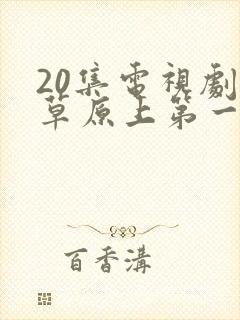 20集電視劇
草原上第一
百香溝